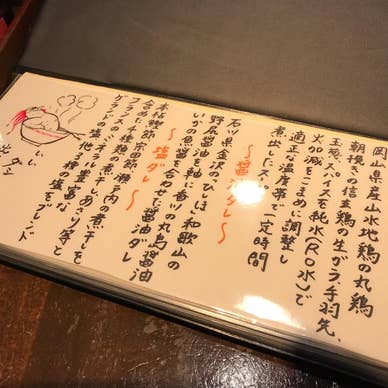 岡山県産山水地鶏の丸鶏
朝挽きの信玄鶏の生ガラ手羽先、
玉葱、スパイスを純水(RO水)で
火加減をこまめに調整し
適正な温度帯で一定時間
煮出したスープ
〜醤油ダレ〜
石川県金沢のひしほ、和歌山の
野尻醤油を軸に香川の丸島醤油
いかの魚醤を合わせた醤油ダレ
〜塩ダレ〜
本枯鰹節、宗田節、瀬戸内の煮干しを
合めた千種類の煮干しと
フランスのミネラル豊富な
ゲランドの塩、他3種の塩をブレンド